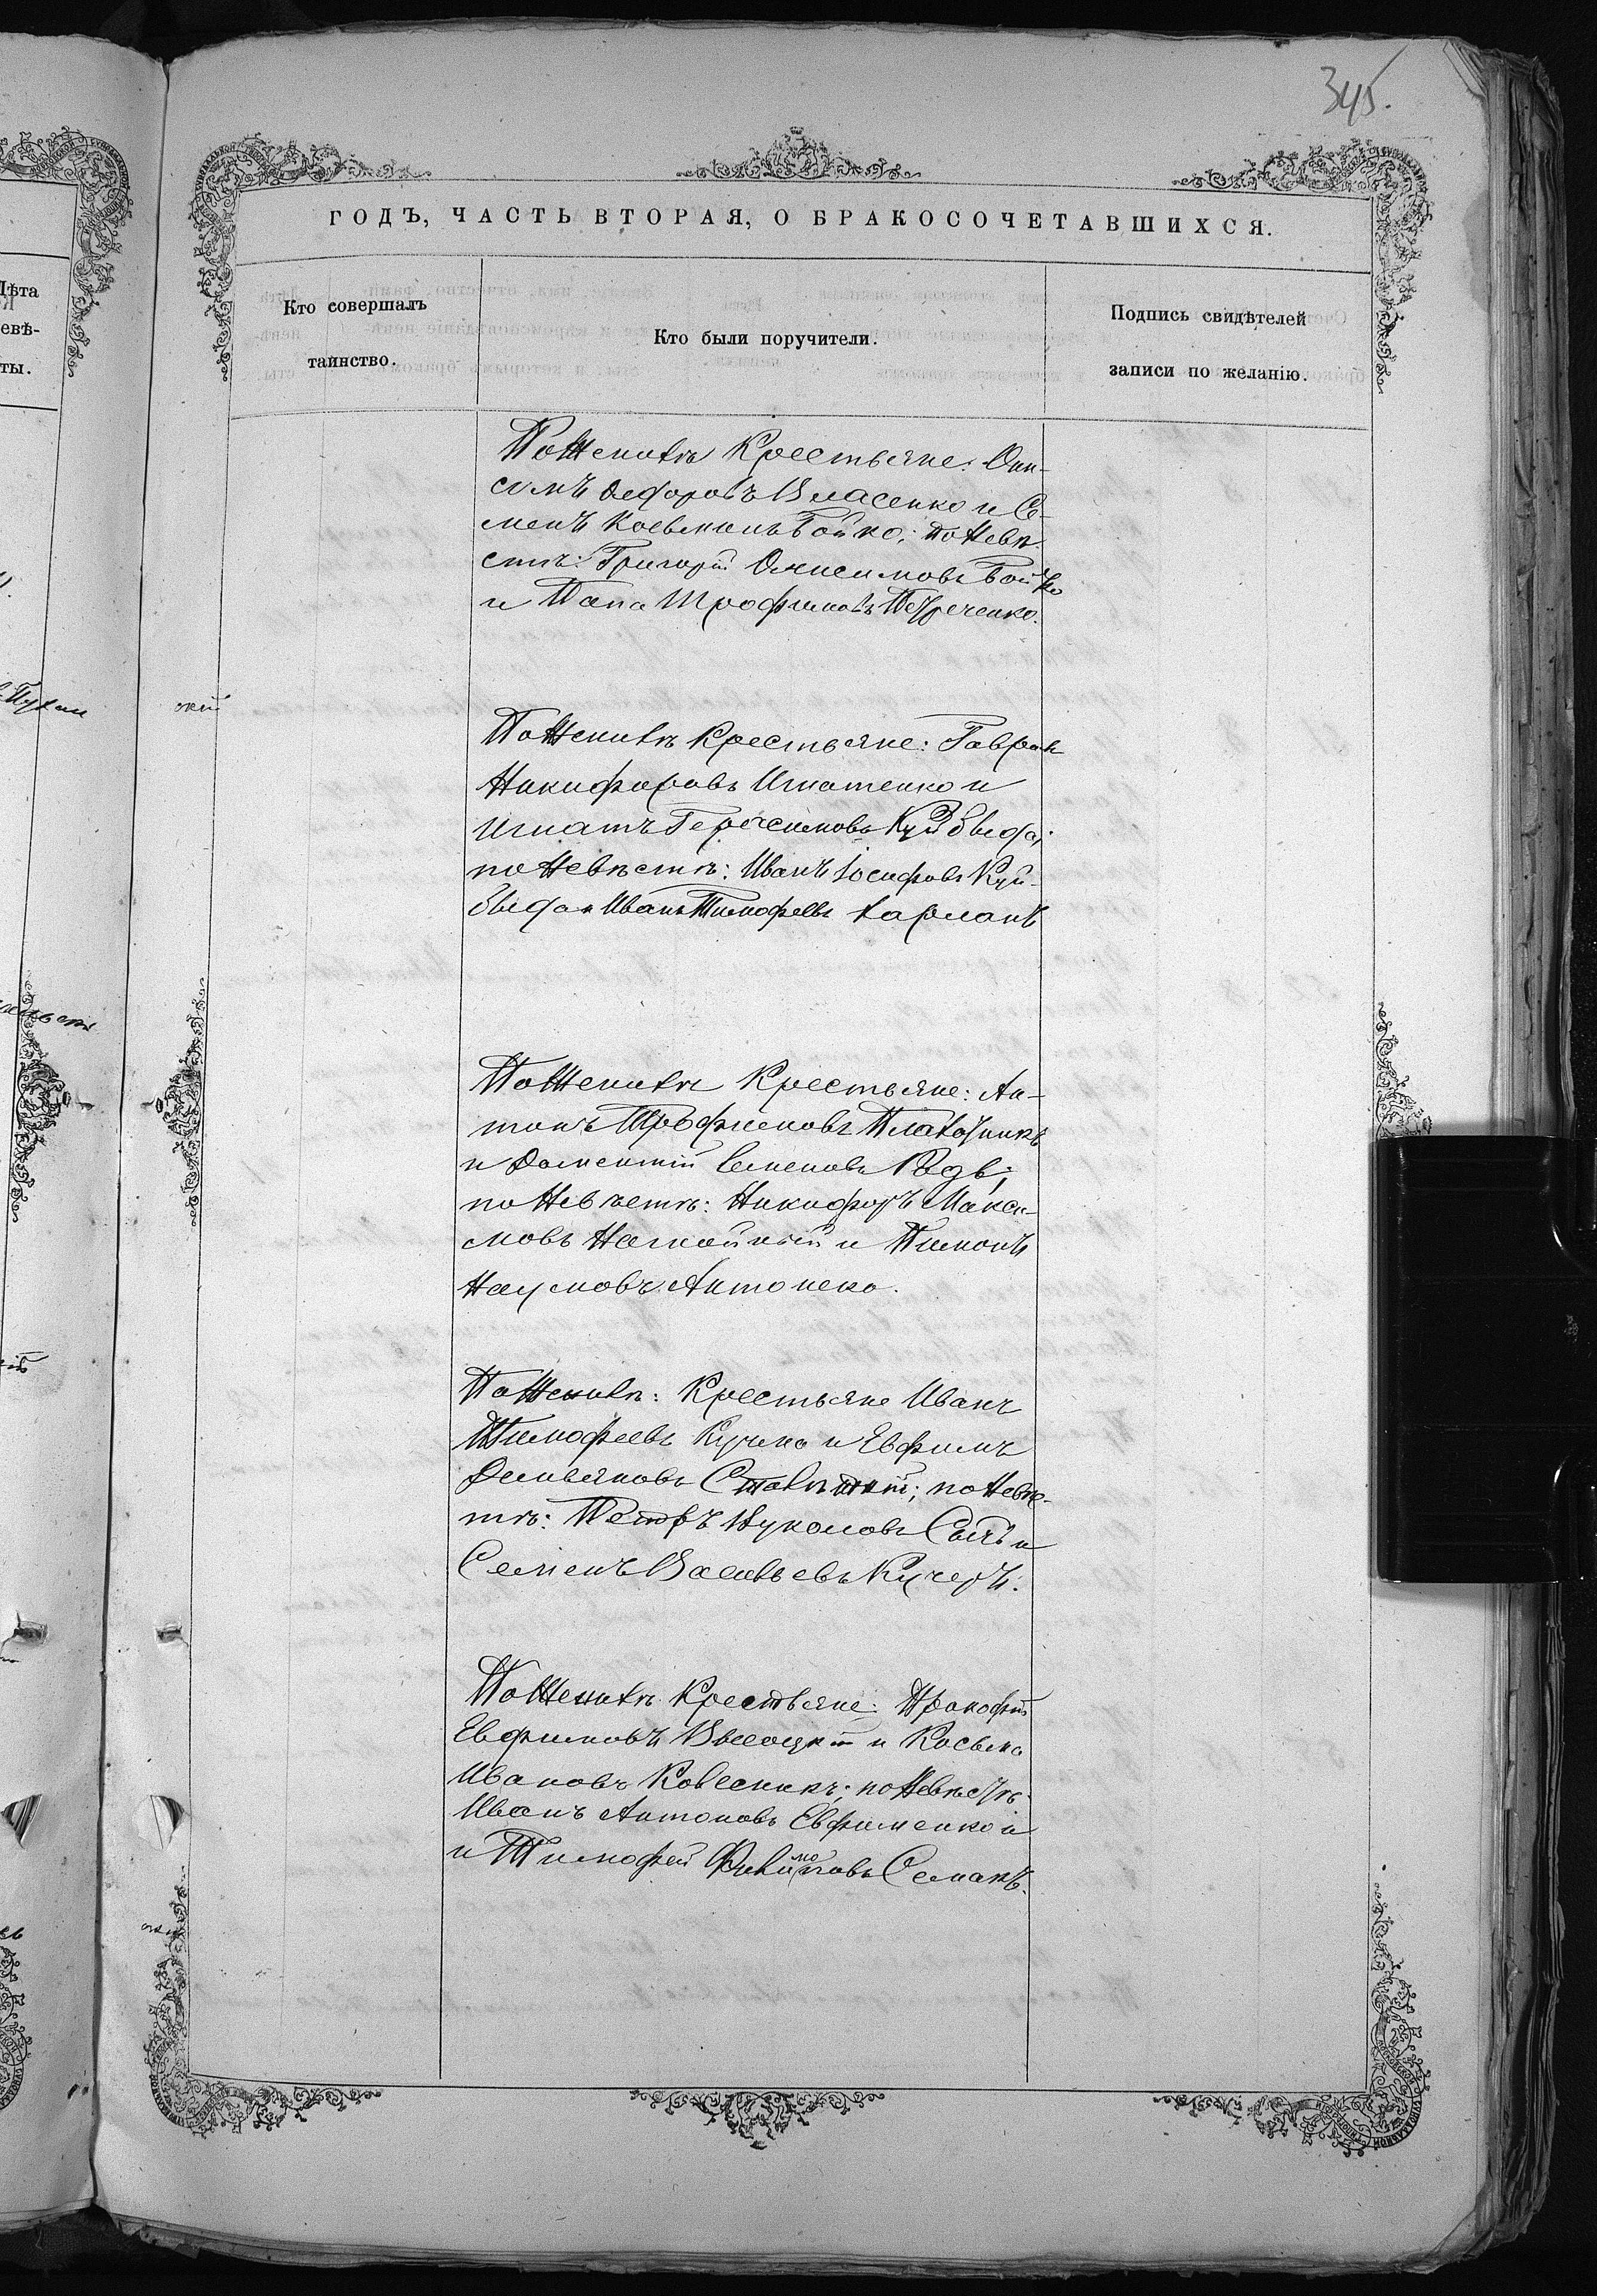 345.
ГОДЪ, ЧАСТЬ ВТОРАЯ, О БРАКОСОЧЕТАВШИХСЯ.
Лѣта
невѣ-
сты.
Кто совершалъ
таинство.
Кто были поручители.
Подпись свидѣтелей
записи по желанію.
По Женихѣ Крестьяне: Они-
симъ Федоровъ Власенко и Се-
менъ Косьминъ Бойко; по Невѣ-
стѣ: Григорій Онисимовъ Бойко
и Трофимовъ
По Женихѣ Крестьяне: Гавриилъ
Никифоровъ Игнатенко и
Игнатъ Герасимовъ Куйбыда;
по Невѣстѣ: Иванъ Іосифовъ Куй-
быда и Иванъ Тимофеевъ Харланъ
По Женихѣ Крестьяне: Ан-
тонъ Трофимовъ
и Дометій Семеновъ
по Невѣстѣ: Никифоръ Макси-
мовъ и Тимонъ
Наумовъ Антоненко.
По Женихѣ: Крестьяне Иванъ
Тимофеевъ Кучма и Евфимъ
Демьяновъ по Невѣс-
тѣ: Петръ Нуколовъ и
Семенъ Васильевъ Кучеръ.
По Женихѣ Крестьяне: Прокофій
Евфимовъ Высоцкій и Косьма
Ивановъ Колесникъ; по Невѣстѣ:
Иванъ Антоновъ Евфименко и
и Тимофей Филимоновъ Семакъ.